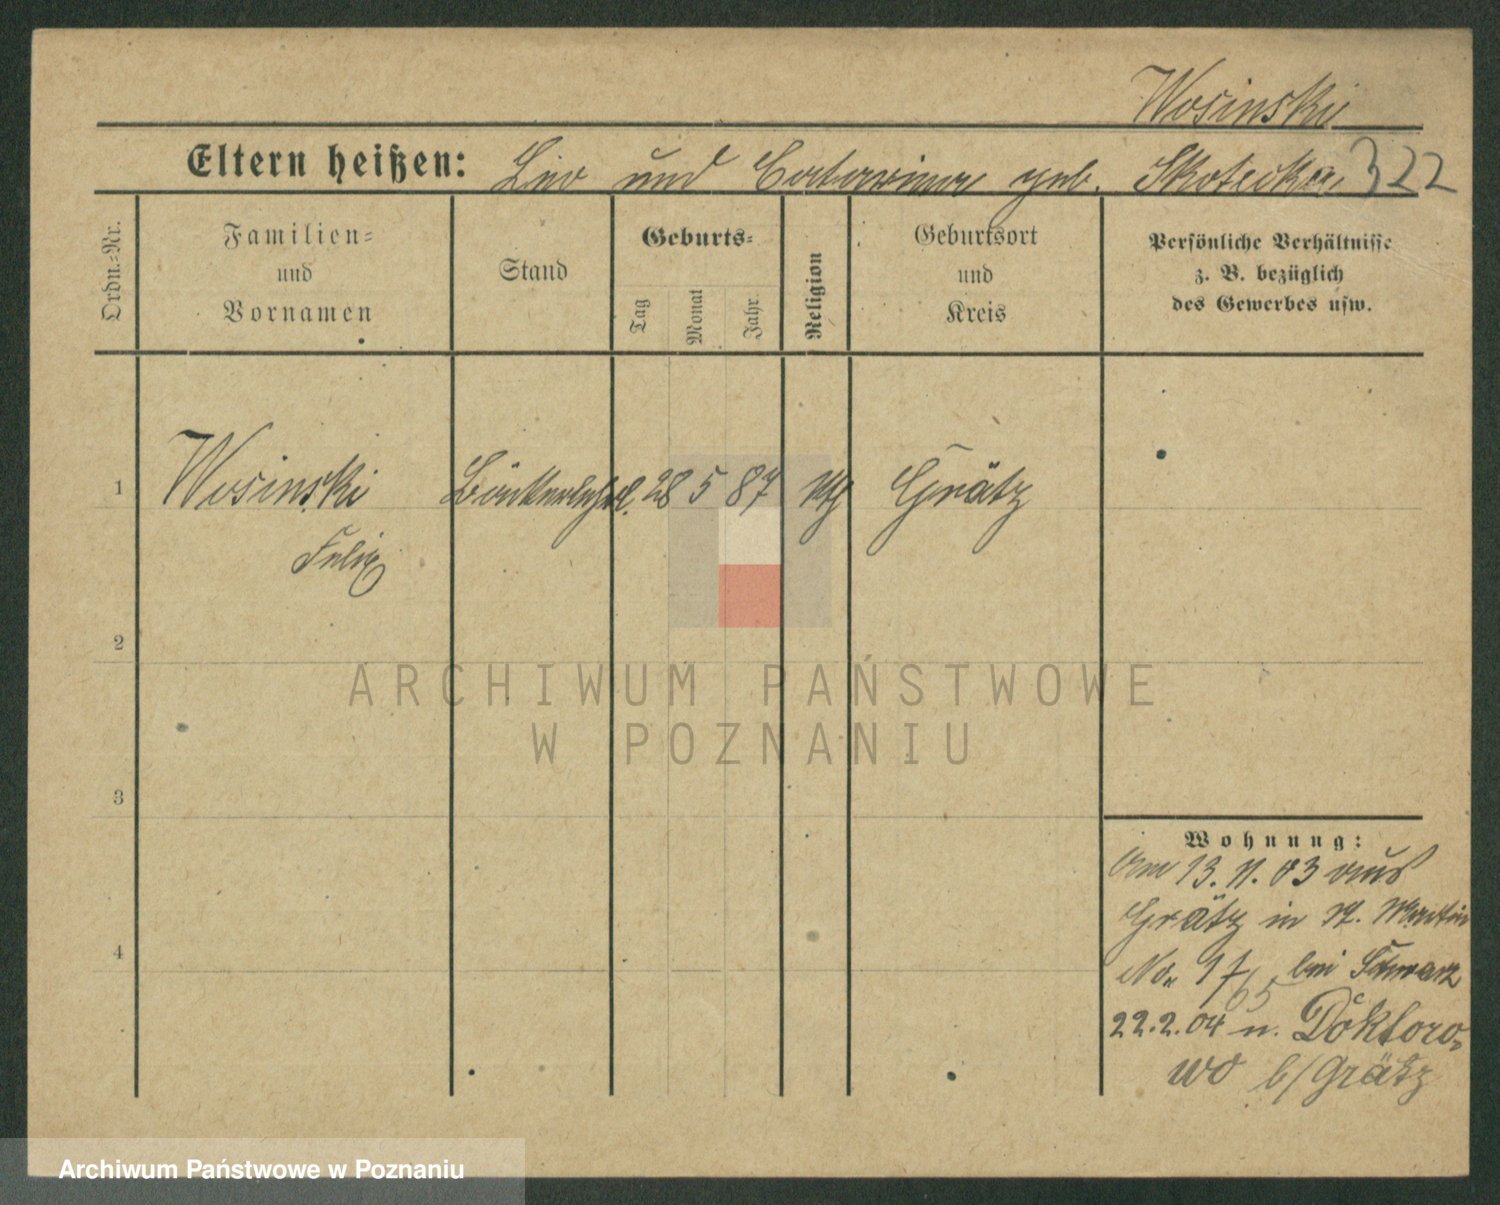 Wosinski
Eltern heißen: Leo und Catarina geb. Skotecka 322
Ordn.-Nr.
Familien-
und
Vornamen
Stand
Geburts-
Tag
Monat
Jahr.
Religion
Geburtsort
und
Kreis
Persönliche Verhältnisse
z. B. bezüglich
des Gewerbes usw.
1 Wosinski 28 5 87 kth Grätz
Felix
2
3
4
Wohnung:
Am 13. 11. 03 aus
Grätz in St. Martin
No. 17/65 bei Schwarz
22.2.04 n. Doktoro-
wo b/Grätz
ARCHIWUM PAŃSTWOWE
W POZNANIU
Archiwum Państwowe w Poznaniu